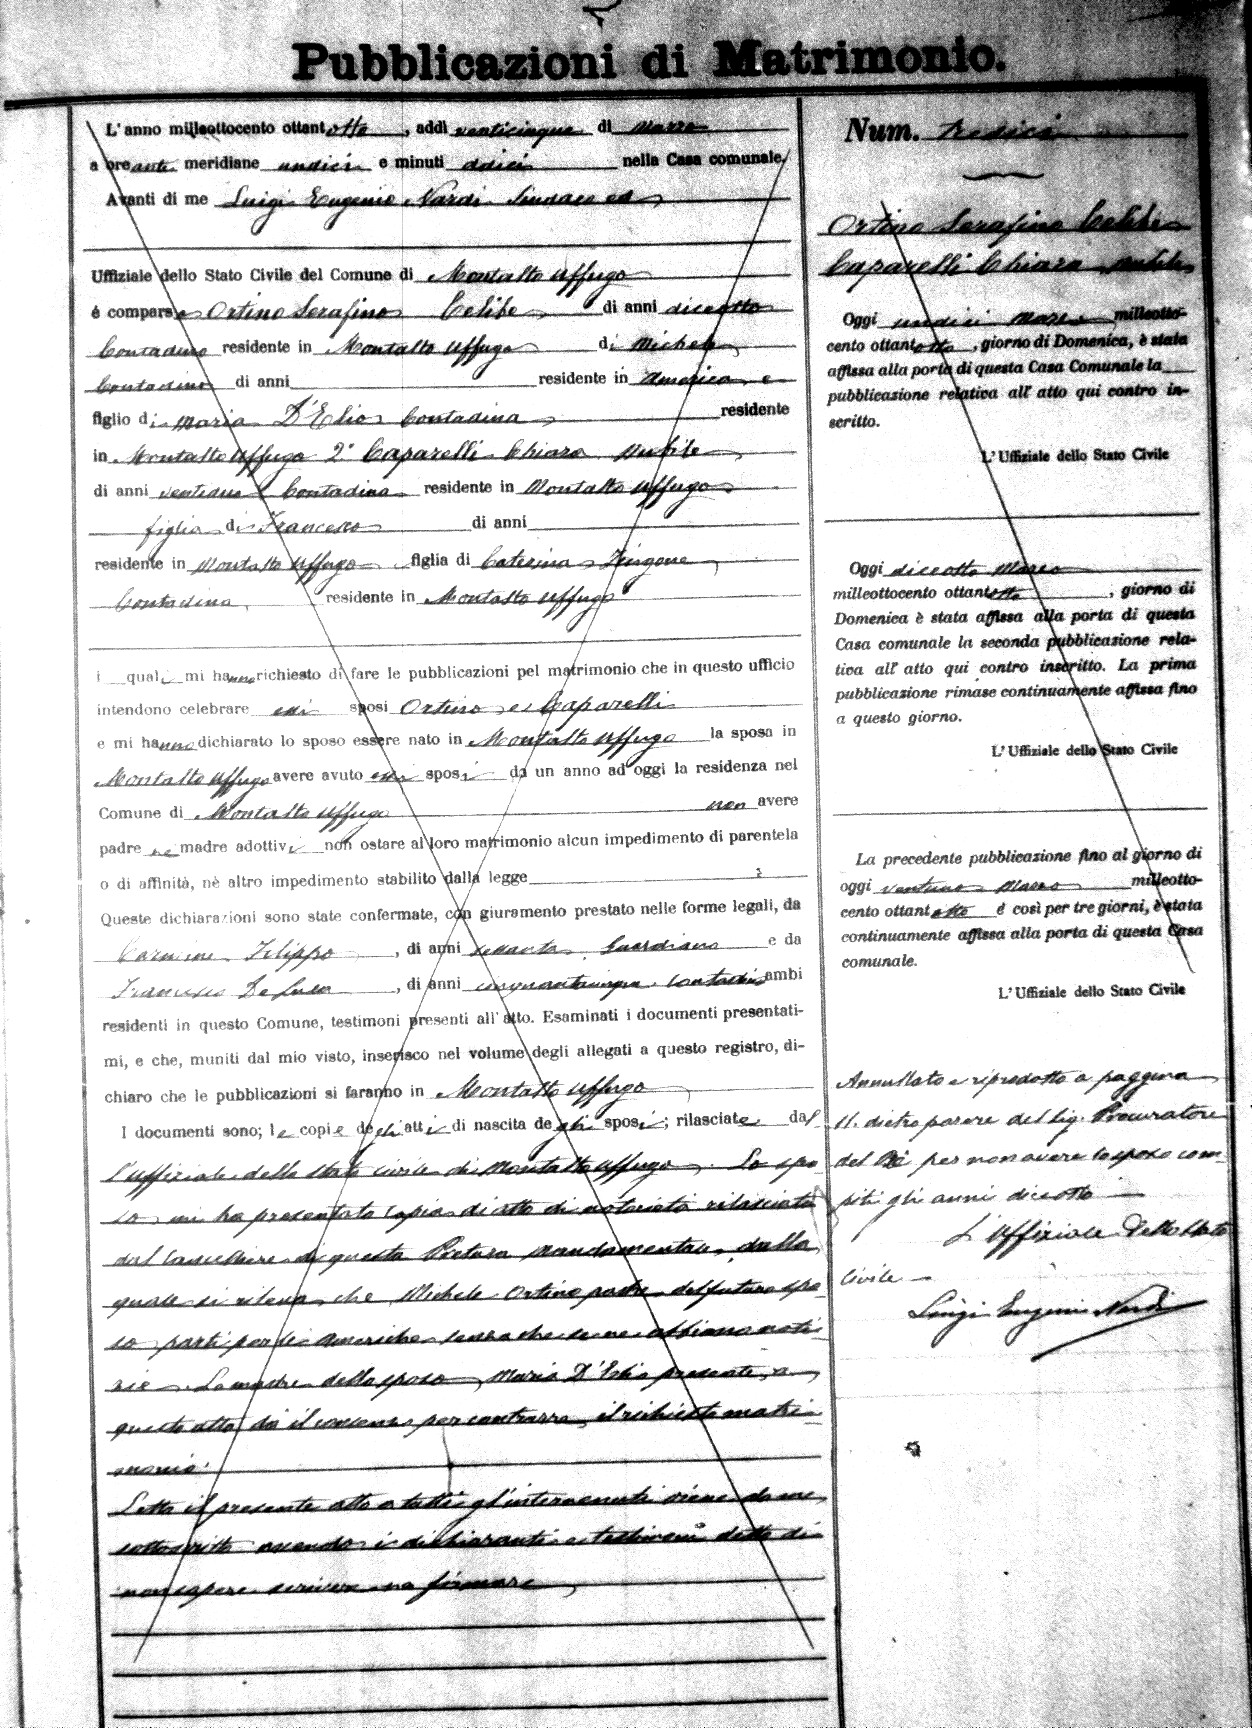 Pubblicazioni di Matrimonio.
L'anno milleottocento ottantotto, addi venticinque di Marzo
a ore anti meridiane undici e minuti dodici nella Casa comunale.
Avanti di me Luigi Eugenio Nardi Sindaco ed
Uffiziale dello Stato Civile del Comune di Montalto Uffugo
é comparso Ortino Serafino Celibe di anni diciotto
Contadino residente in Montalto Uffugo di Michele
Contadino di anni residente in America e
figlio di Maria D'Elio Contadina residente
in Montalto Uffugo 2° Caparelli Chiara nubile
di anni ventidue Contadina residente in Montalto Uffugo
figlia di Francesco di anni
residente in Montalto Uffugo figlia di Caterina Zingone
Contadina, residente in Montalto Uffugo
i quali mi hanno richiesto di fare le pubblicazioni pel matrimonio che in questo ufficio
intendono celebrare essi sposi Ortino e Caparelli
e mi hanno dichiarato lo sposo essere nato in Montalto Uffugo la sposa in
Montalto Uffugo avere avuto essi sposi da un anno ad oggi la residenza nel
Comune di Montalto Uffugo non avere
padre ne madre adottivi non ostare al loro matrimonio alcun impedimento di parentela
o di affinità, nè altro impedimento stabilito dalla legge
Queste dichiarazioni sono state confermate, con giuramento prestato nelle forme legali, da
Carmine Filippo, di anni sessanta Guardiano e da
Francesco De Luca, di anni cinquantacinque contadino ambi
residenti in questo Comune, testimoni presenti all'atto. Esaminati i documenti presentati-
mi, e che, muniti dal mio visto, inserisco nel volume degli allegati a questo registro, di-
chiaro che le pubblicazioni si faranno in Montalto Uffugo
I documenti sono; le copie degli atti di nascita degli sposi; rilasciate dal
l'uffiziale dello stato civile di Montalto Uffugo. Lo spo
so mi ha presentato copia di atto di notorietà rilasciato
dal Cancelliere di questa Pretura Mandamentale, dalla
quale si rileva che Michele Ortino padre del futuro spo
so partì per le Americhe senza che se ne abbiano noti
zie. La madre dello sposo Maria D'Elio presente a
questo atto dà il consenso per contrarre il richiesto matri
monio.
Letto il presente atto a tutti gl'intervenuti viene da me
sottoscritto avendo i dichiaranti e testimoni detto di
non sapere scrivere ne firmare
Num. tredici
Ortino Serafino Celibe
Caparelli Chiara nubile
Oggi undici Marzo milleotto-
cento ottantotto, giorno di Domenica, è stata
affissa alla porta di questa Casa Comunale la
pubblicazione relativa all' atto qui contro in-
scritto.
L'Uffiziale dello Stato Civile
Oggi diciotto Marzo
milleottocento ottantotto, giorno di
Domenica è stata affissa alla porta di questa
Casa comunale la seconda pubblicazione rela-
tiva all' atto qui contro inscritto. La prima
pubblicazione rimase continuamente affissa fino
a questo giorno.
L'Uffiziale dello Stato Civile
La precedente pubblicazione fino al giorno di
oggi ventuno Marzo milleotto-
cento ottantotto é così per tre giorni, è stata
continuamente affissa alla porta di questa Casa
comunale.
L'Uffiziale dello Stato Civile
Annullato e riprodotto a paggina
11. dietro parere del Sig. Procuratore
del Re per non avere lo sposo com-
piti gli anni diciotto
L'Uffiziale dello Stato
Civile
Luigi Eugenio Nardi